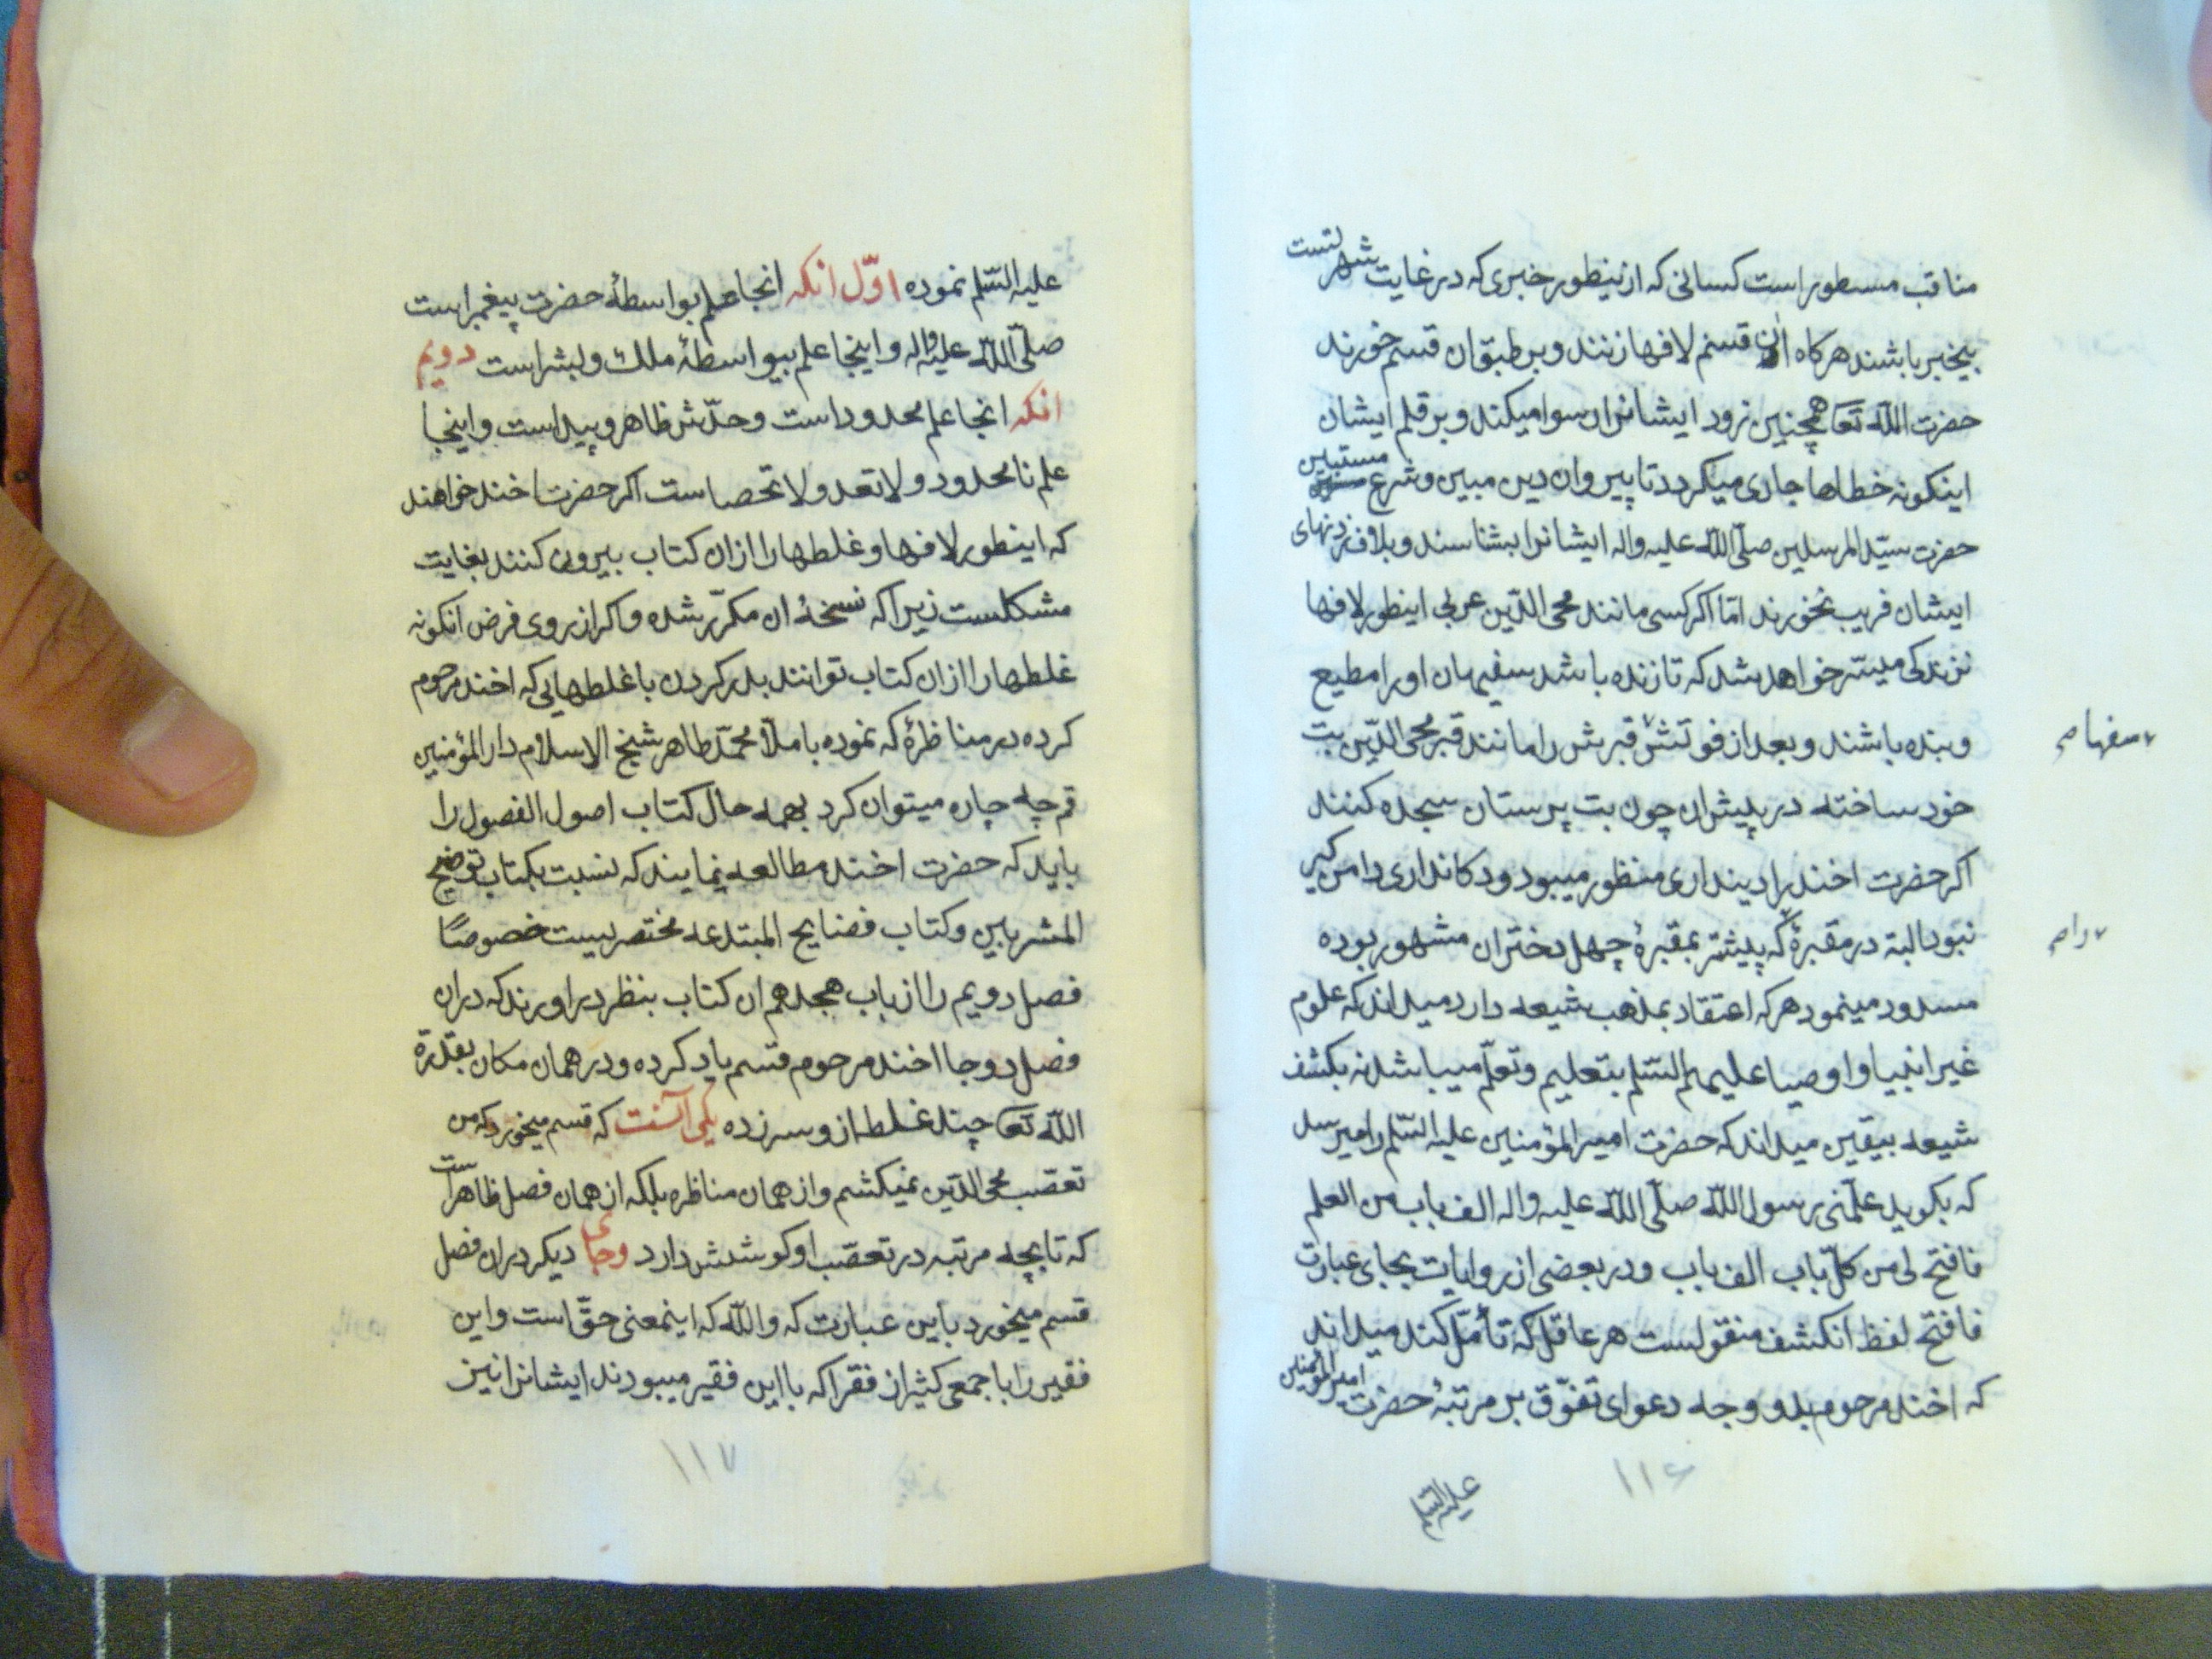 مناقب مسطور است کسانی که از ینطور خبری که در غایت شهرتست
بیخبر باشند هرکاه ازین قسنم لافها زنند و بر طبق ان قسم خورند
حضرت اللّه تعا همچنین زود ایشانرا رسوا میکند و بر قلم ایشان
اینکونه خطاها جاری میکردد تا پیروان دین مبین و شرع مستبین
حضرت سیّد المرسلین صلّی اللّه علیه واله ایشانرا بشناسند و بلاف زدنهای
ایشان فریب نخورند امّا اکر کسی مانند محی الدّین عربی اینطور لافها
نزند کی میسّر خواهد شد که تا زنده باشد سفیهان او را مطیع
سفها ص
و بنده باشند و بعد از فوتش قبرش را مانند قبر محی الدّین بت
خود ساخته در پیش ان چون بت پرستان سجده کنند
اکر حضرت اخند را دینداری منظور میبود و دکانداری دامن کیر
نبود البته در مقبرهٔ که پیشتر بمقبرهٔ چهل دختران مشهور بوده
را ص
مسدود مینمود هر که اعتقاد بمذهب شیعه دارد میداند که علوم
غیر انبیا و اوصیا علیهم السّلم بتعلیم و تعلّم میباشد نه بکشف
شیعه بیقین میداند که حضرت امیر المؤمنین علیه السّلم را میرسد
که بکوید علّمنی رسول اللّه صلّی اللّه علیه واله الف باب من العلم
فافتح لی من کلّ باب الف باب و در بعضی از روایات بجای عبارت
فافتح لفظ انکشف منقولست هر عاقل که تأمّل کند میداند
که اخند مرحوم بدو وجه دعوای تفوّق بر مرتبهٔ حضرت امیر المؤمنین
علیه السّلم
۱۱۶
علیه السّلم نموده اوّل انکه انجا علم بواسطهٔ حضرت پیغمبر است
صلّی اللّه علیه واله و اینجا علم بیواسطهٔ ملک و بشر است دویم
انکه انجا علم محدود است و حدّش ظاهر و پیداست و اینجا
علم نامحدود و لا تعد و لا تحصاست اکر حضرت اخند خواهند
که اینطور لافها و غلطها را از ان کتاب بیرون کنند بغایت
مشکلست زیرا که نسخهٔ ان مکرّر شده و اکر از روی فرض انکونه
غلطها را از ان کتاب توانند بدر کردن با غلطهایی که اخند مرحوم
کرده در مناظرهٔ که نموده با ملّا محمّد طاهر شیخ الاسلام دار المؤمنین
قم چه چاره میتوان کرد بهمه حال کتاب اصول الفصول را
باید که حضرت اخند مطالعه نمایند که نسبت بکتاب توضیح
المشربین و کتاب فضایح المبتدعه مختصریست خصوصًا
فصل دویم را از باب هجدهم ان کتاب بنظر دراورند که در ان
فصل دو جا اخند مرحوم قسم یاد کرده و در همان مکان بقدرة
اللّه تعا چند غلط از و سر زده یکی آنست که قسم میخورد که من
تعصّب محی الدّین نمیکشم و از همان مناظره بلکه از همان فصل ظاهر است
که تا بچه مرتبه در تعصّب او کوشش دارد و جای دیکر در ان فصل
قسم میخورد باین عبارت که واللّه که اینمعنی حقّ است و این
فقیر را با جمعی کثیر از فقرا که با این فقیر میبودند ایشانرا نیز
۱۱۷